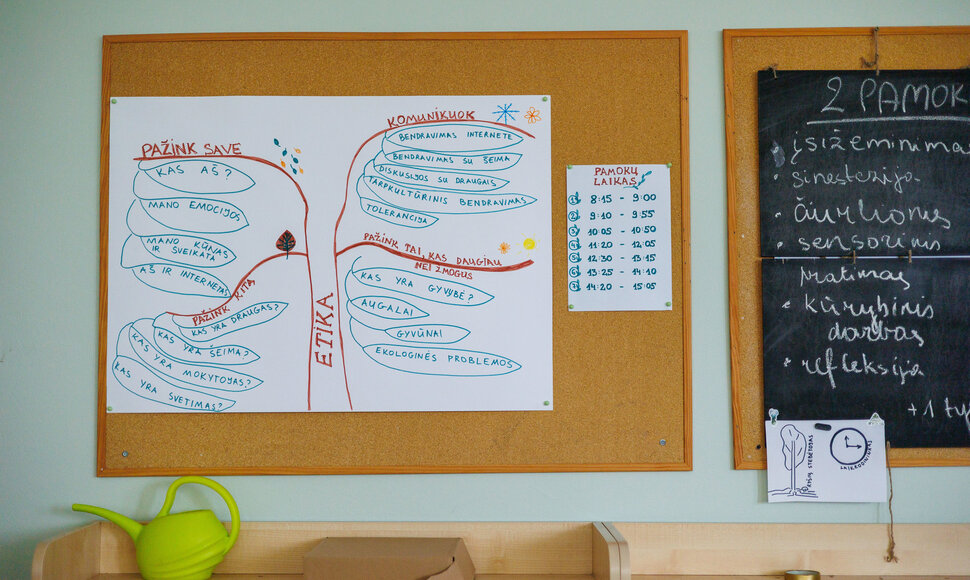 PAŽINK SAVE
KAS AŠ?
MANO EMOCIJOS
MANO KŪNAS
IR SVEIKATA
AŠ IR INTERNETAS
PAŽINK KITĄ
KAS YRA DRAUGAS?
KAS YRA ŠEIMA?
KAS YRA MOKYTOJAS?
KAS YRA SVETIMAS?
ETIKA
KOMUNIKUOK
BENDRAVIMAS INTERNETE
BENDRAVIMAS SU ŠEIMA
DISKUSIJOS SU DRAUGAIS
TARPKULTŪRINIS BENDRAVIMAS
TOLERANCIJA
PAŽINK TAI, KAS DAUGIAU
NEI ŽMOGUS
KAS YRA GYVYBĖ?
AUGALAI
GYVŪNAI
EKOLOGINĖS PROBLEMOS
PAMOKŲ
LAIKAS
1. 8:15 - 9:00
2. 9:10 - 9:55
3. 10:05 - 10:50
4. 11:20 - 12:05
5. 12:30 - 13:15
6. 13:25 - 14:10
7. 14:20 - 15:05
2 PAMOK
įsižeminimas
sinestezija
čiurlionis
sensorinis
matimas
kūrybinis
darbas
refleksija
+1 ty
RYŠIŲ STEBĖTOJAS
LAIKRODININKAS